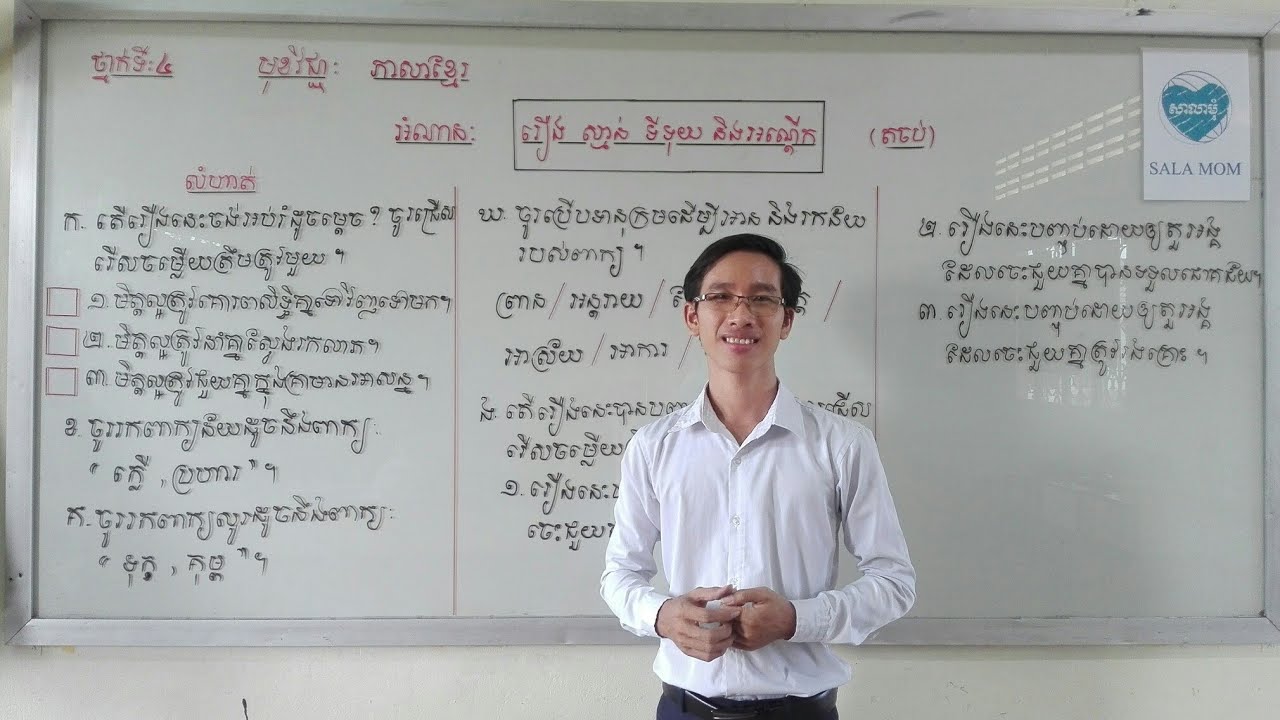 ថ្នាក់ទី៖៤ មុខវិជ្ជា៖ ភាសាខ្មែរ
អំណាន៖ រឿង ស្មាន់ ទីទុយ និងអណ្ដើក (តចប់)
សាលាមុំ
SALA MOM
លំហាត់
ក. តើរឿងនេះចង់អប់រំដូចម្ដេច? ចូរជ្រើស
រើសចម្លើយត្រឹមត្រូវមួយ ។
១. មិត្តល្អត្រូវគោរពសិទ្ធិគ្នាទៅវិញទៅមក។
២. មិត្តល្អត្រូវនាំគ្នាស្វែងរកលាភ។
៣. មិត្តល្អត្រូវជួយគ្នាក្នុងគ្រាមានអាសន្ន។
ខ. ចូររកពាក្យន័យដូចនឹងពាក្យ៖
" ក្លើ , ប្រហារ " ។
គ. ចូររកពាក្យសូរដូចនឹងពាក្យ៖
" ទុក្ខ , គុម្ព " ។
ឃ. ចូរប្រើវចនានុក្រមដើម្បីអាន និងរកន័យ
របស់ពាក្យ ។
ព្រាន / អន្តរាយ /
អាស្រ័យ / អាការ /
ង. តើរឿងនេះបាន
រើសចម្លើយ
១. រឿងនេះ
ចេះជួយ
២. រឿងនេះបញ្ចប់ដោយឲ្យតួរអង្គ
ដែលចេះជួយគ្នាបានទទួលជោគជ័យ។
៣. រឿងនេះបញ្ចប់ដោយឲ្យតួរអង្គ
ដែលចេះជួយគ្នាត្រូវរងគ្រោះ ។